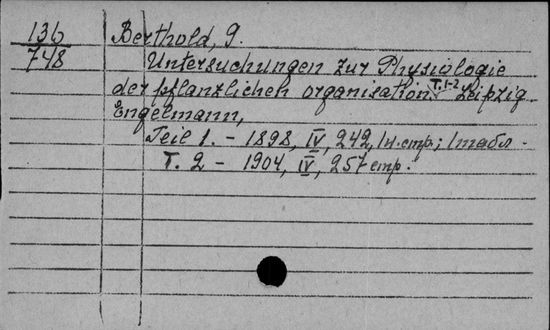 136 Berthold, G.
748 Untersuchungen zur Physiologie
der pflanzlichen organisation. T. 1-2 Leipzig
Engelmann,
Teil 1. - 1898, IV, 242, 1н.стр; 1табл.
T. 2 - 1904, IV, 257 стр.